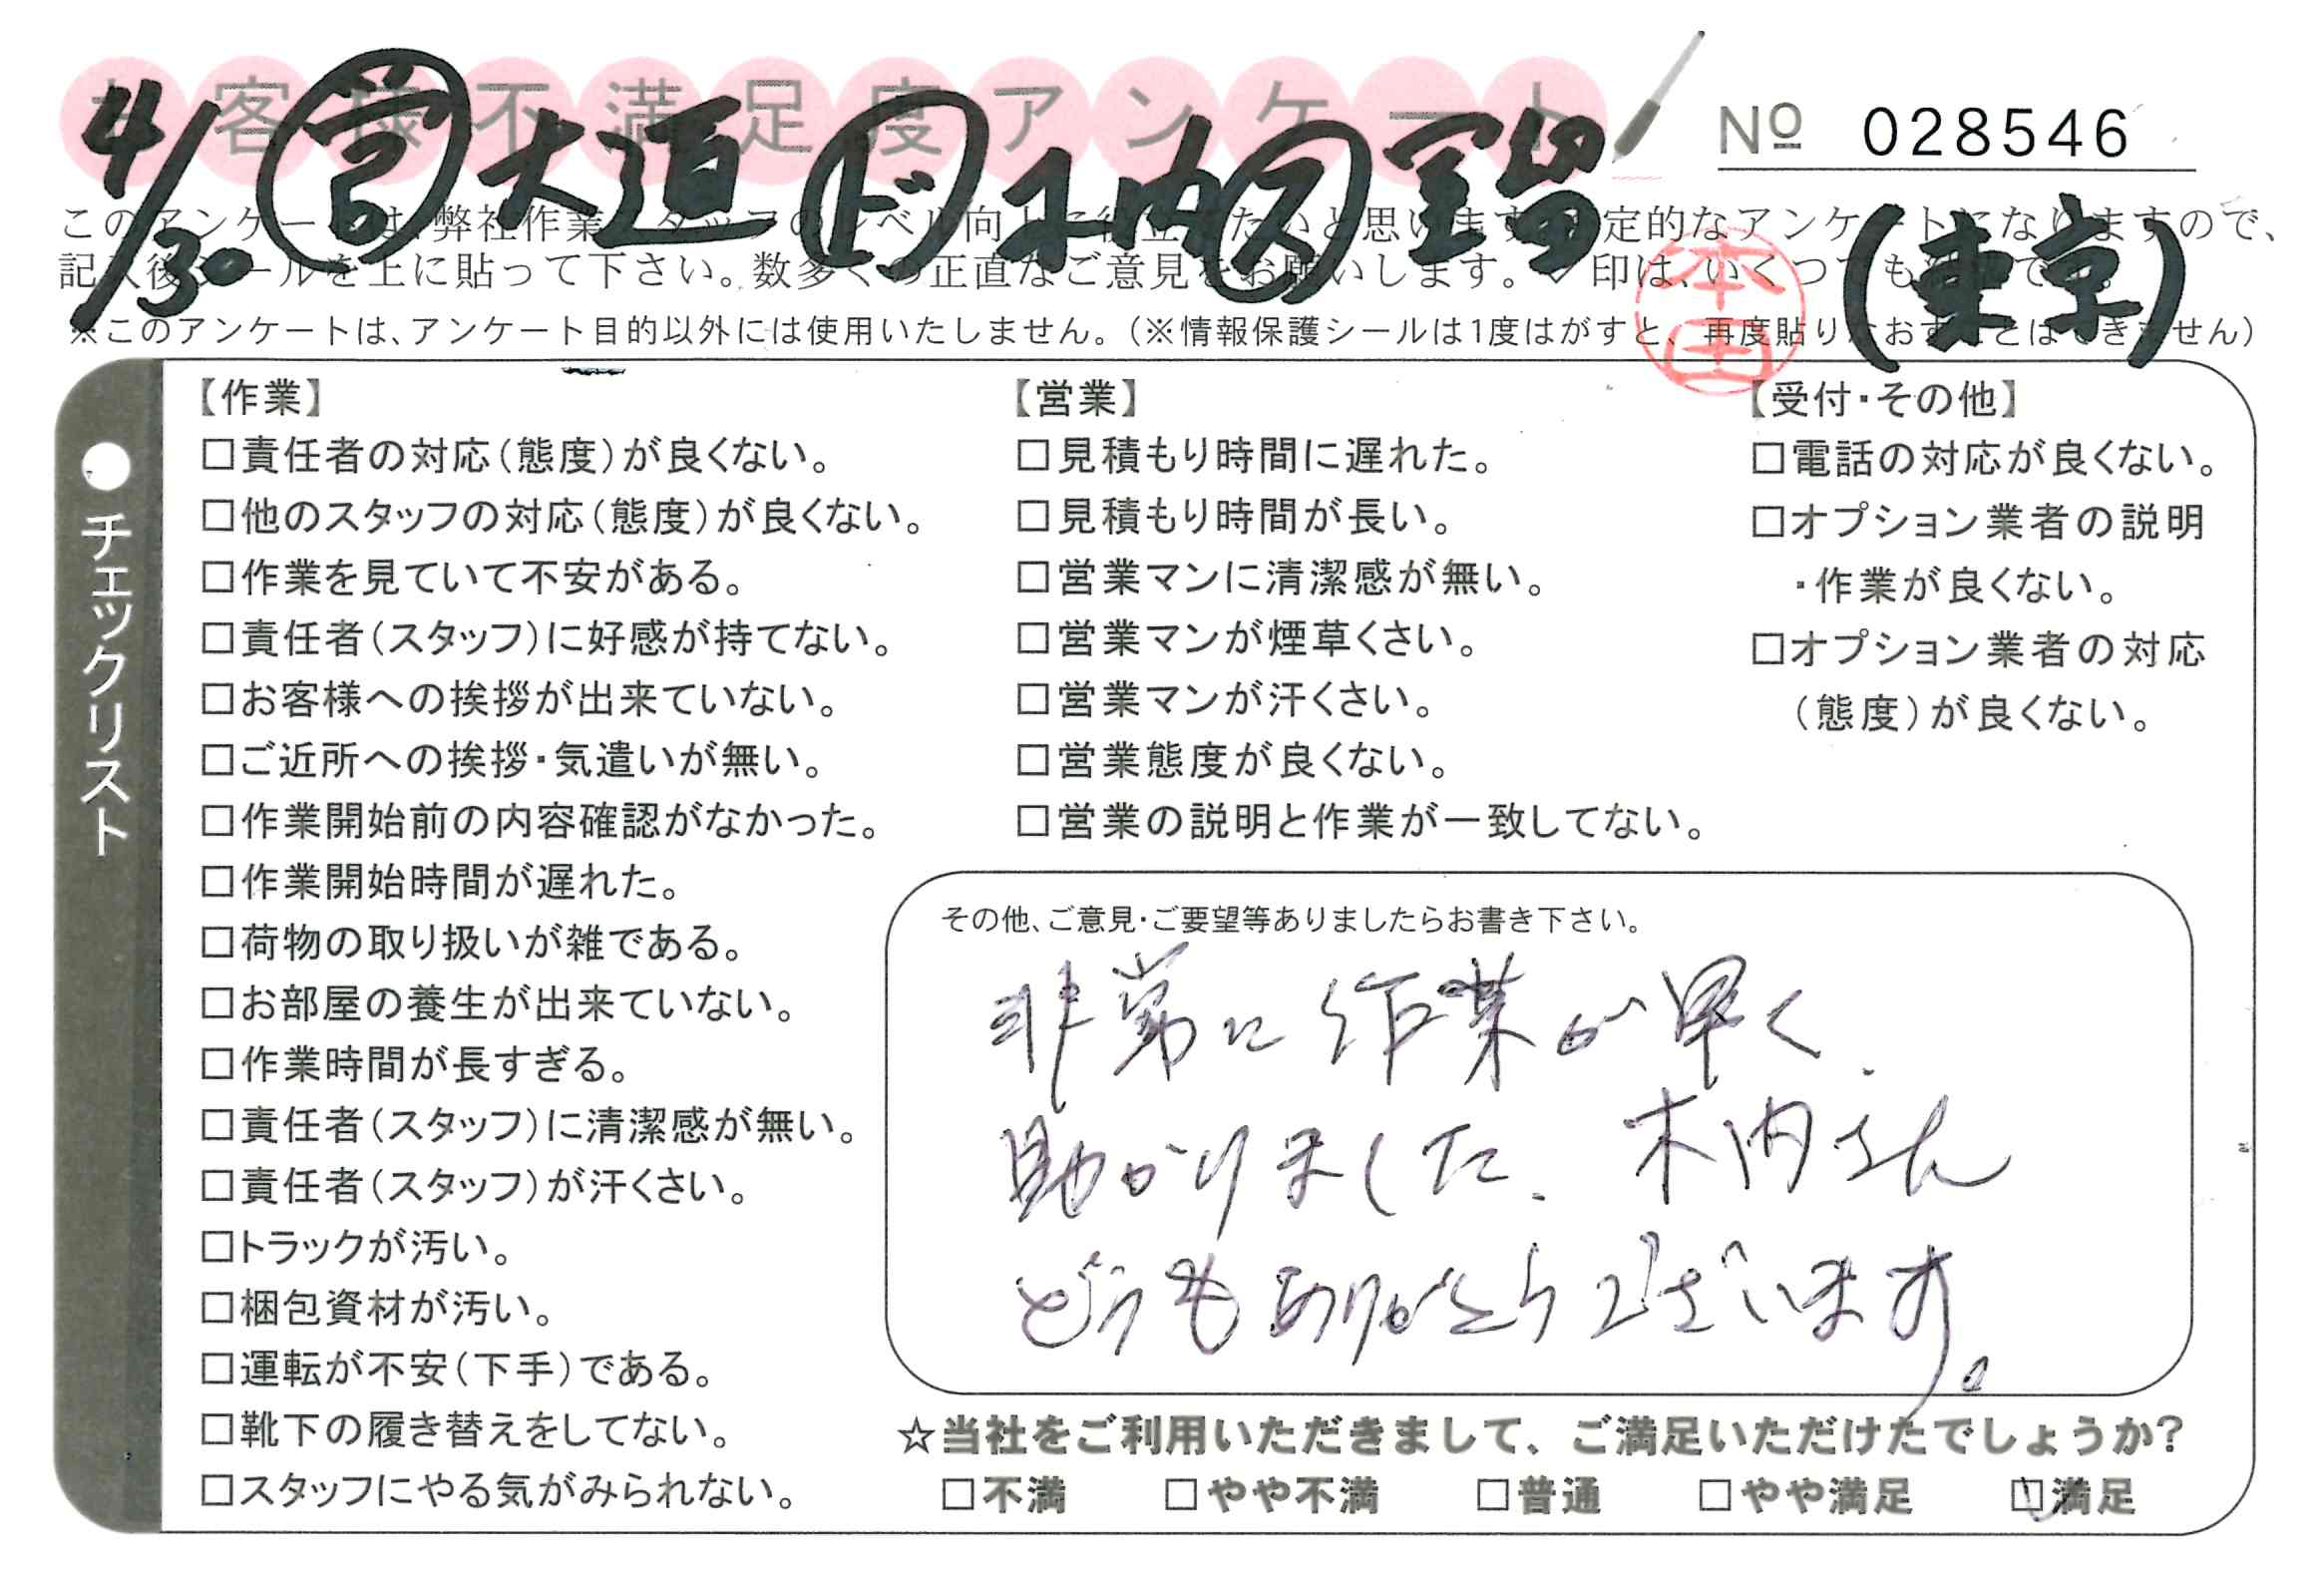 お客様不満足度アンケート
№ 028546
4/30 営 大道 ド 木内 ス 室留 (東京)
このアンケートは、弊社作業スタッフのレベル向上に役立てたいと思います。定的なアンケートになりますので、
記入後シールを上に貼って下さい。数多くの正直なご意見をお願いします。✓印は、いくつでも
※このアンケートは、アンケート目的以外には使用いたしません。(※情報保護シールは1度はがすと、再度貼りなおすことはできません)
本田
●チェックリスト
【作業】
□責任者の対応(態度)が良くない。
□他のスタッフの対応(態度)が良くない。
□作業を見ていて不安がある。
□責任者(スタッフ)に好感が持てない。
□お客様への挨拶が出来ていない。
□ご近所への挨拶・気遣いが無い。
□作業開始前の内容確認がなかった。
□作業開始時間が遅れた。
□荷物の取り扱いが雑である。
□お部屋の養生が出来ていない。
□作業時間が長すぎる。
□責任者(スタッフ)に清潔感が無い。
□責任者(スタッフ)が汗くさい。
□トラックが汚い。
□梱包資材が汚い。
□運転が不安(下手)である。
□靴下の履き替えをしてない。
□スタッフにやる気がみられない。
【営業】
□見積もり時間に遅れた。
□見積もり時間が長い。
□営業マンに清潔感が無い。
□営業マンが煙草くさい。
□営業マンが汗くさい。
□営業態度が良くない。
□営業の説明と作業が一致してない。
【受付・その他】
□電話の対応が良くない。
□オプション業者の説明
・作業が良くない。
□オプション業者の対応
(態度)が良くない。
その他、ご意見・ご要望等ありましたらお書き下さい。
非常に作業が早く、
助かりました。木内さん
どうもありがとうございます。
☆当社をご利用いただきまして、ご満足いただけたでしょうか?
□不満 □やや不満 □普通 □やや満足 ☑満足